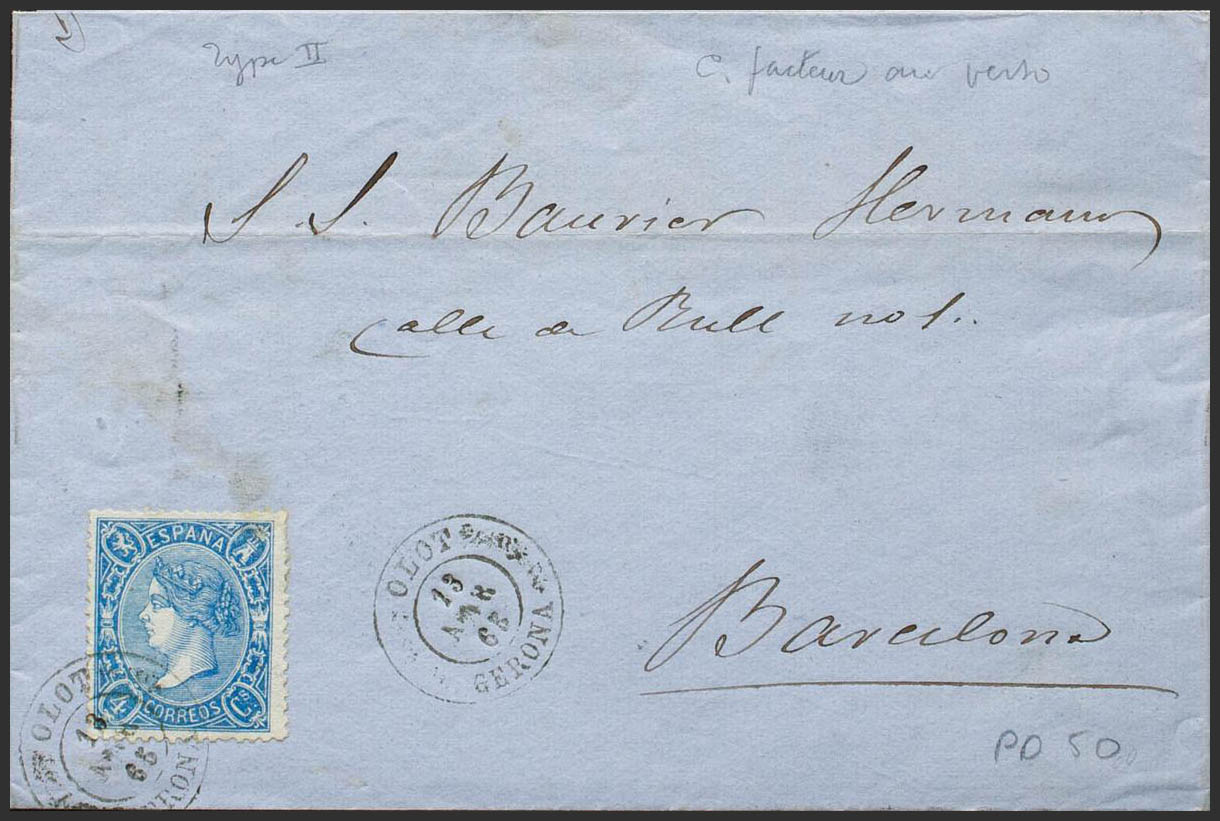 Type II
C. facteur au verso
S. S. Baurier Hermanos
Calle de Rull no 1.
ESPAÑA
4 Cs
CORREOS
OLOT
13
ABR
65
GERONA
OLOT
13
ABR
65
GERONA
Barcelona
PD 50